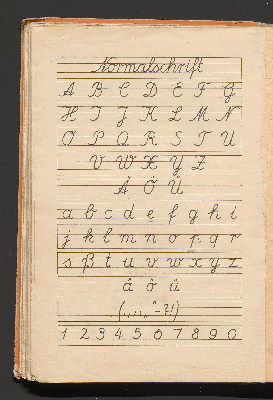 Normalschrift
A B C D E F G
H I J K L M N
O P Q R S T U
V W X Y Z
Ä Ö Ü
a b c d e f g h i
j k l m n o p q r
s ß t u v w x y z
ä ö ü
1 2 3 4 5 6 7 8 9 0